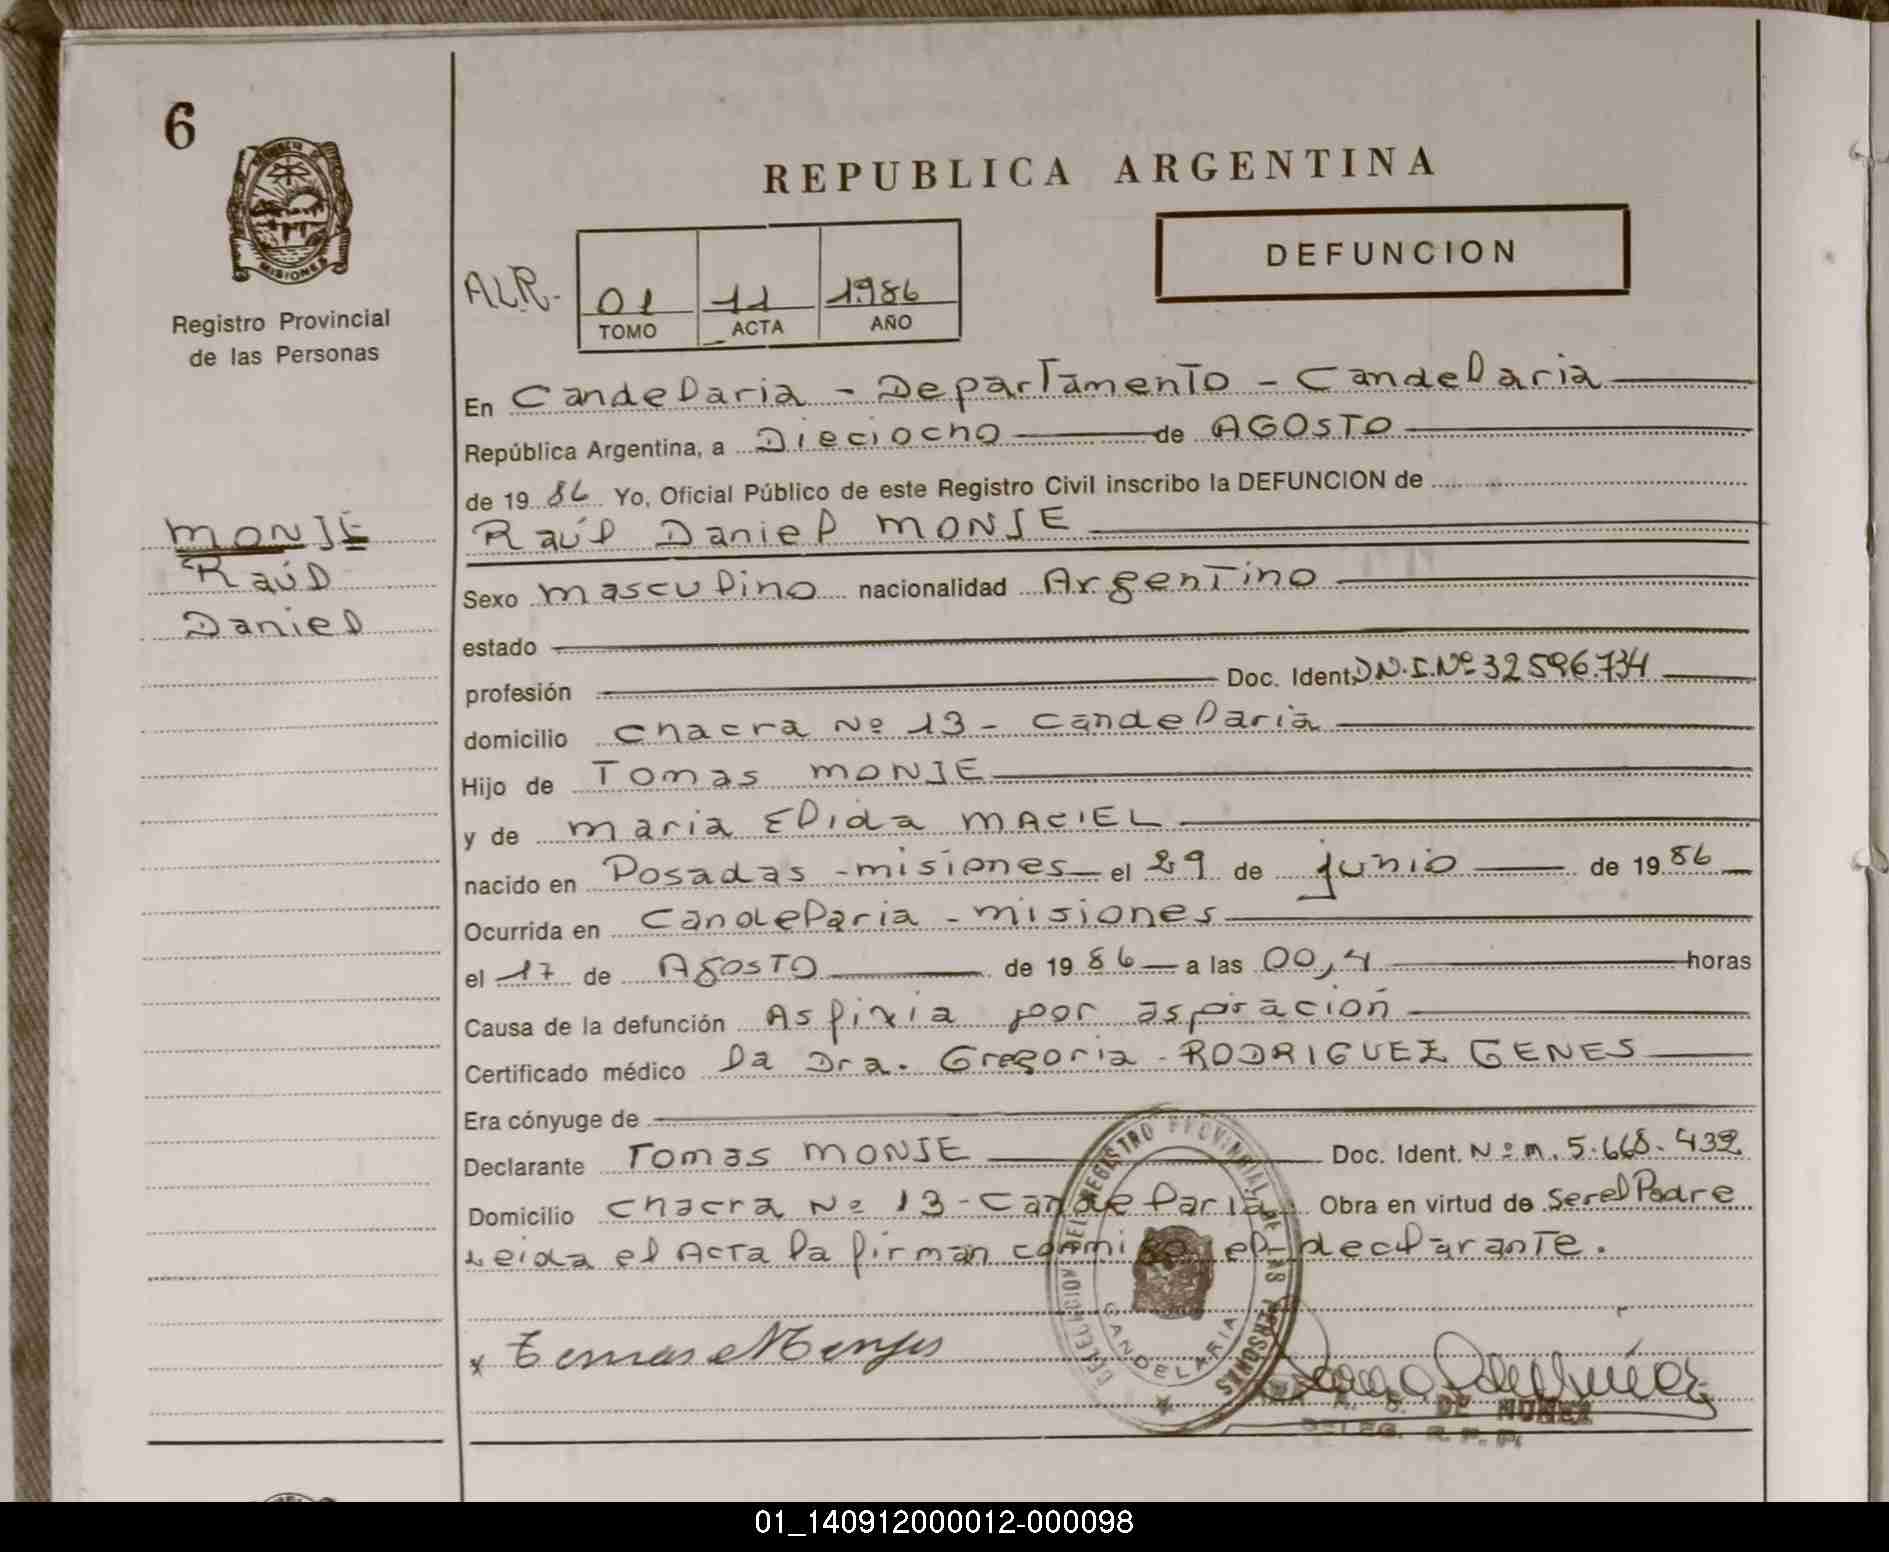 6
MISIONES
Registro Provincial
de las Personas
MONJE
Raúl
Daniel
REPUBLICA ARGENTINA
DEFUNCION
ALR.
01 11 1986
TOMO ACTA AÑO
En Candelaria - Departamento - Candelaria
República Argentina, a Dieciocho de AGOSTO
de 1986 Yo, Oficial Público de este Registro Civil inscribo la DEFUNCION de
Raúl Daniel MONJE
Sexo masculino nacionalidad Argentino
estado
profesión Doc. Ident. D.N.I. Nº 32.596.734
domicilio chacra Nº 13 - Candelaria
Hijo de Tomas MONJE
y de Maria Elida MACIEL
nacido en Posadas - misiones el 29 de junio de 1986
Ocurrida en Candelaria - misiones
el 17 de AgOSTO de 1986 a las 00,4 horas
Causa de la defunción Asfixia por aspiración
Certificado médico la Dra. Gregoria RODRIGUEZ GENES
Era cónyuge de
Declarante Tomas MONJE Doc. Ident. Nº m. 5.668.432
Domicilio chacra Nº 13 - Candelaria Obra en virtud de Ser el Padre
Leida el Acta la firman conmigo el declarante.
DELEGACION DEL REGISTRO PROVINCIAL DE LAS PERSONAS
CANDELARIA
DE NUÑEZ
DELEG. R. P. P.
01_140912000012-000098